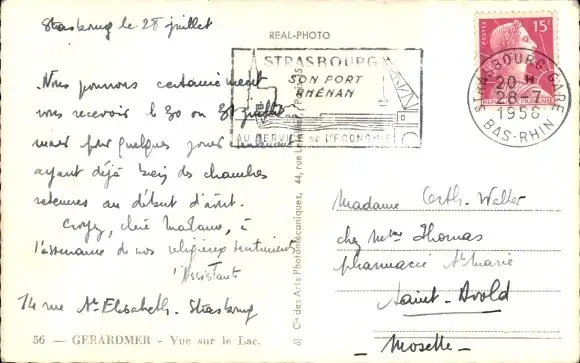 Strasbourg le 28 juillet
REAL-PHOTO
15F
POSTES
STRASBOURG
SON PORT
RHÉNAN
AU SERVICE DE L'ECONOMIE
STRASBOURG-GARE
20 H
28-7
1956
BAS-RHIN
Nous pouvons certainement
vous recevoir le 30 ou 31 juillet
mais pour quelques jours seulement
ayant déjà des chambres
retenues au début d'août.
Croyez, chère Madame, à
l'assurance de nos religieux sentiments
l'Assistante
14 rue Ste Elisabeth. Strasbourg
56 — GERARDMER - Vue sur le Lac.
Cie des Arts Photomécaniques, 44, rue
Madame Cath. Walter
chez Mme Thomas
pharmacie Ste Marie
Saint-Avold
- Moselle -